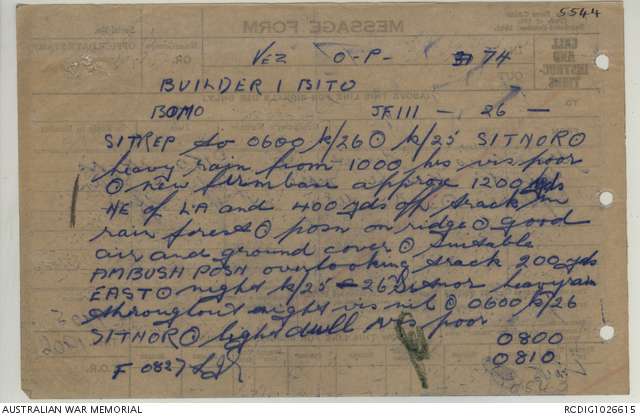 5544
MESSAGE FORM
VEZ O-P- 74
BUILDER 1 BITO
BOMO JF111 - 26 -
SITREP to 0600 K/26 ⊙ K/25 SITNOR ⊙
heavy rain from 1000 hrs vis poor
⊙ new firmbase approx 1200 yds
NE of LA and 400 yds off track in
rain forest ⊙ posn on ridge ⊙ good
air and ground cover ⊙ suitable
AMBUSH POSN overlooking track 200 yds
EAST ⊙ night K/25 - 26 Sitnor heavy rain
throughout night vis nil ⊙ 0600 K/26
SITNOR ⊙ light dull vis poor
0800
0810
F 0827
AUSTRALIAN WAR MEMORIAL
RCDIG1026615